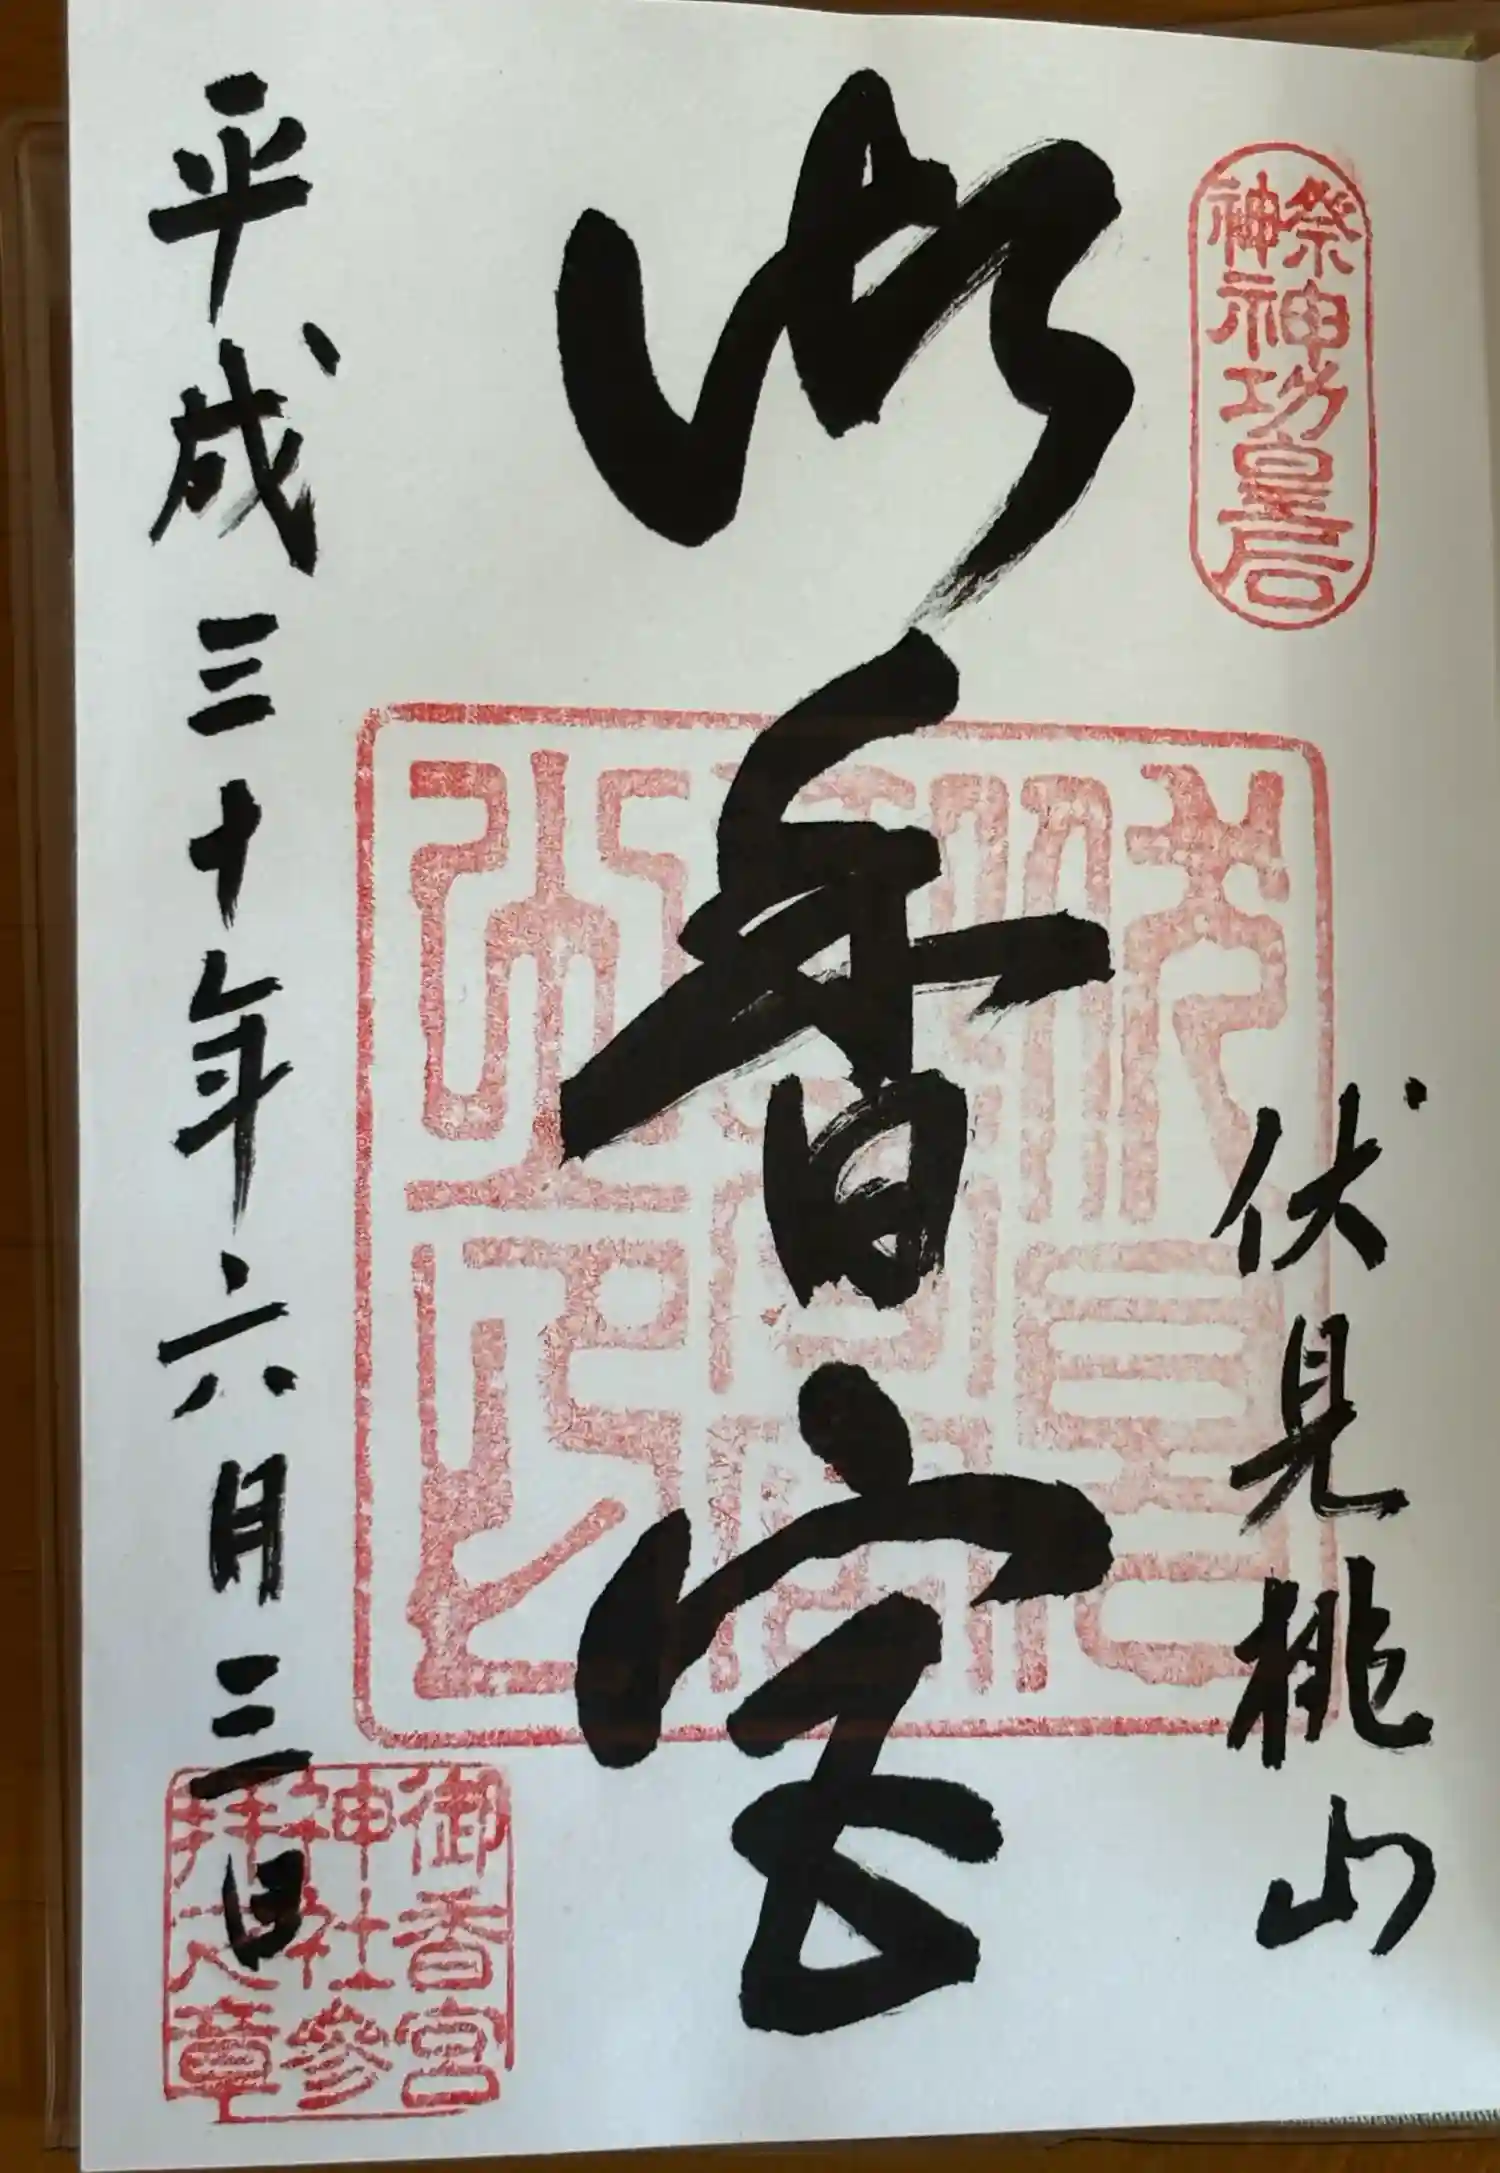 祭神
神功皇后
伏見桃山
御香宮
平成三十年六月三日
御香宮
神社参
拝之章